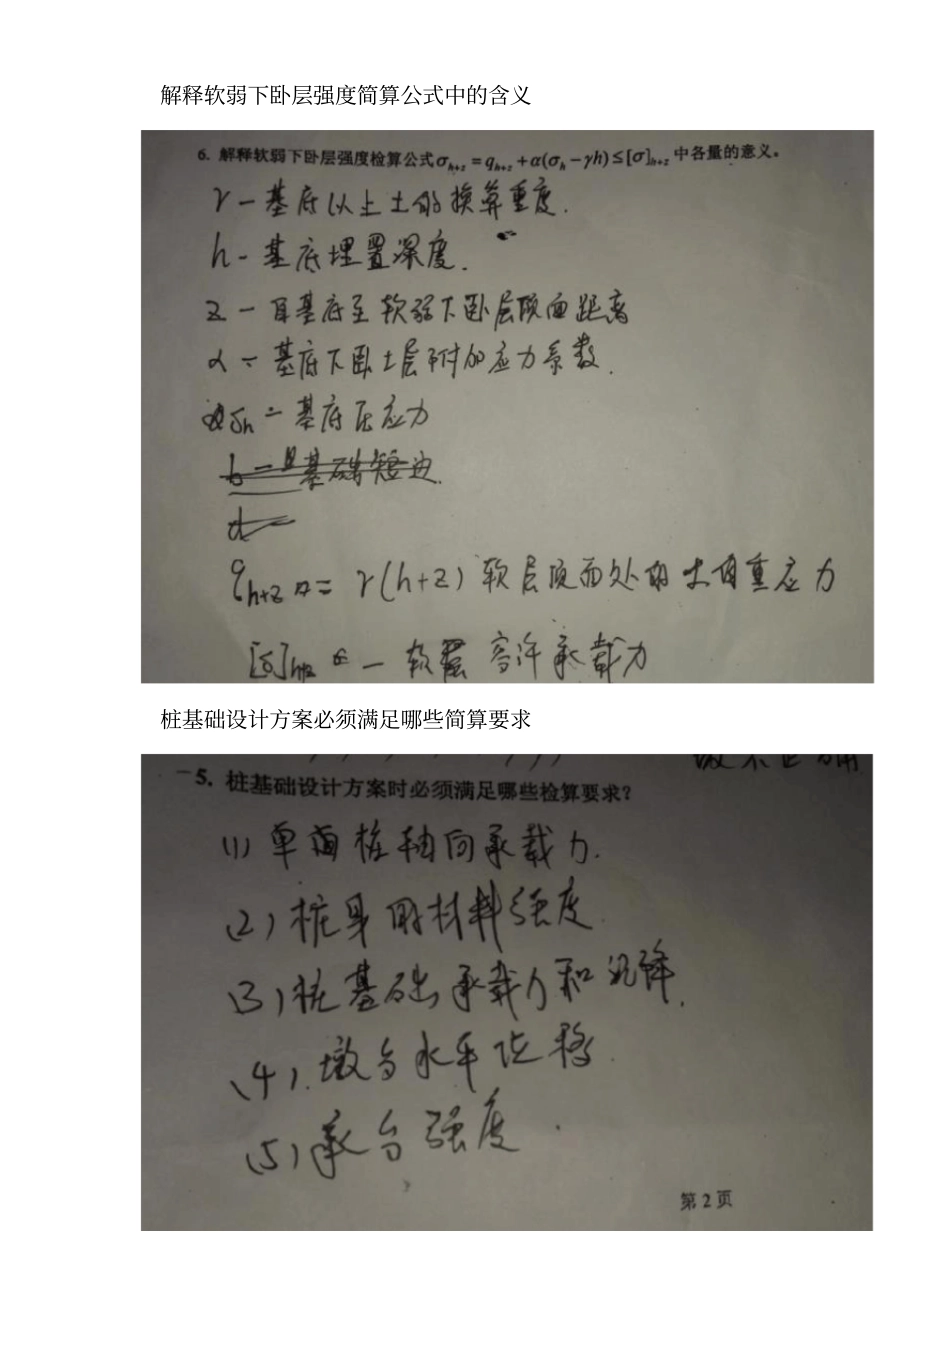 解释软弱下卧层强度简算公式中的含义
6. 解释软弱下卧层强度检算公式σh+z=qh+z+α(σh-γh)≤[σ]h+z 中各量的意义。
γ-基底以上土的换算重度.
h-基底埋置深度.
z-自基底至软弱下卧层顶面距离
α-基底下卧土层附加应力系数.
σh-基底压应力
b-基础短边
qh+z=γ(h+z)软层顶面处的土自重应力
[σ]h+z-软层容许承载力
桩基础设计方案必须满足哪些简算要求
5. 桩基础设计方案时必须满足哪些检算要求?
(1)单桩轴向承载力.
(2)桩身材料强度
(3)桩基础承载力和沉降.
(4).墩台水平位移.
(5)承台强度.
第2页